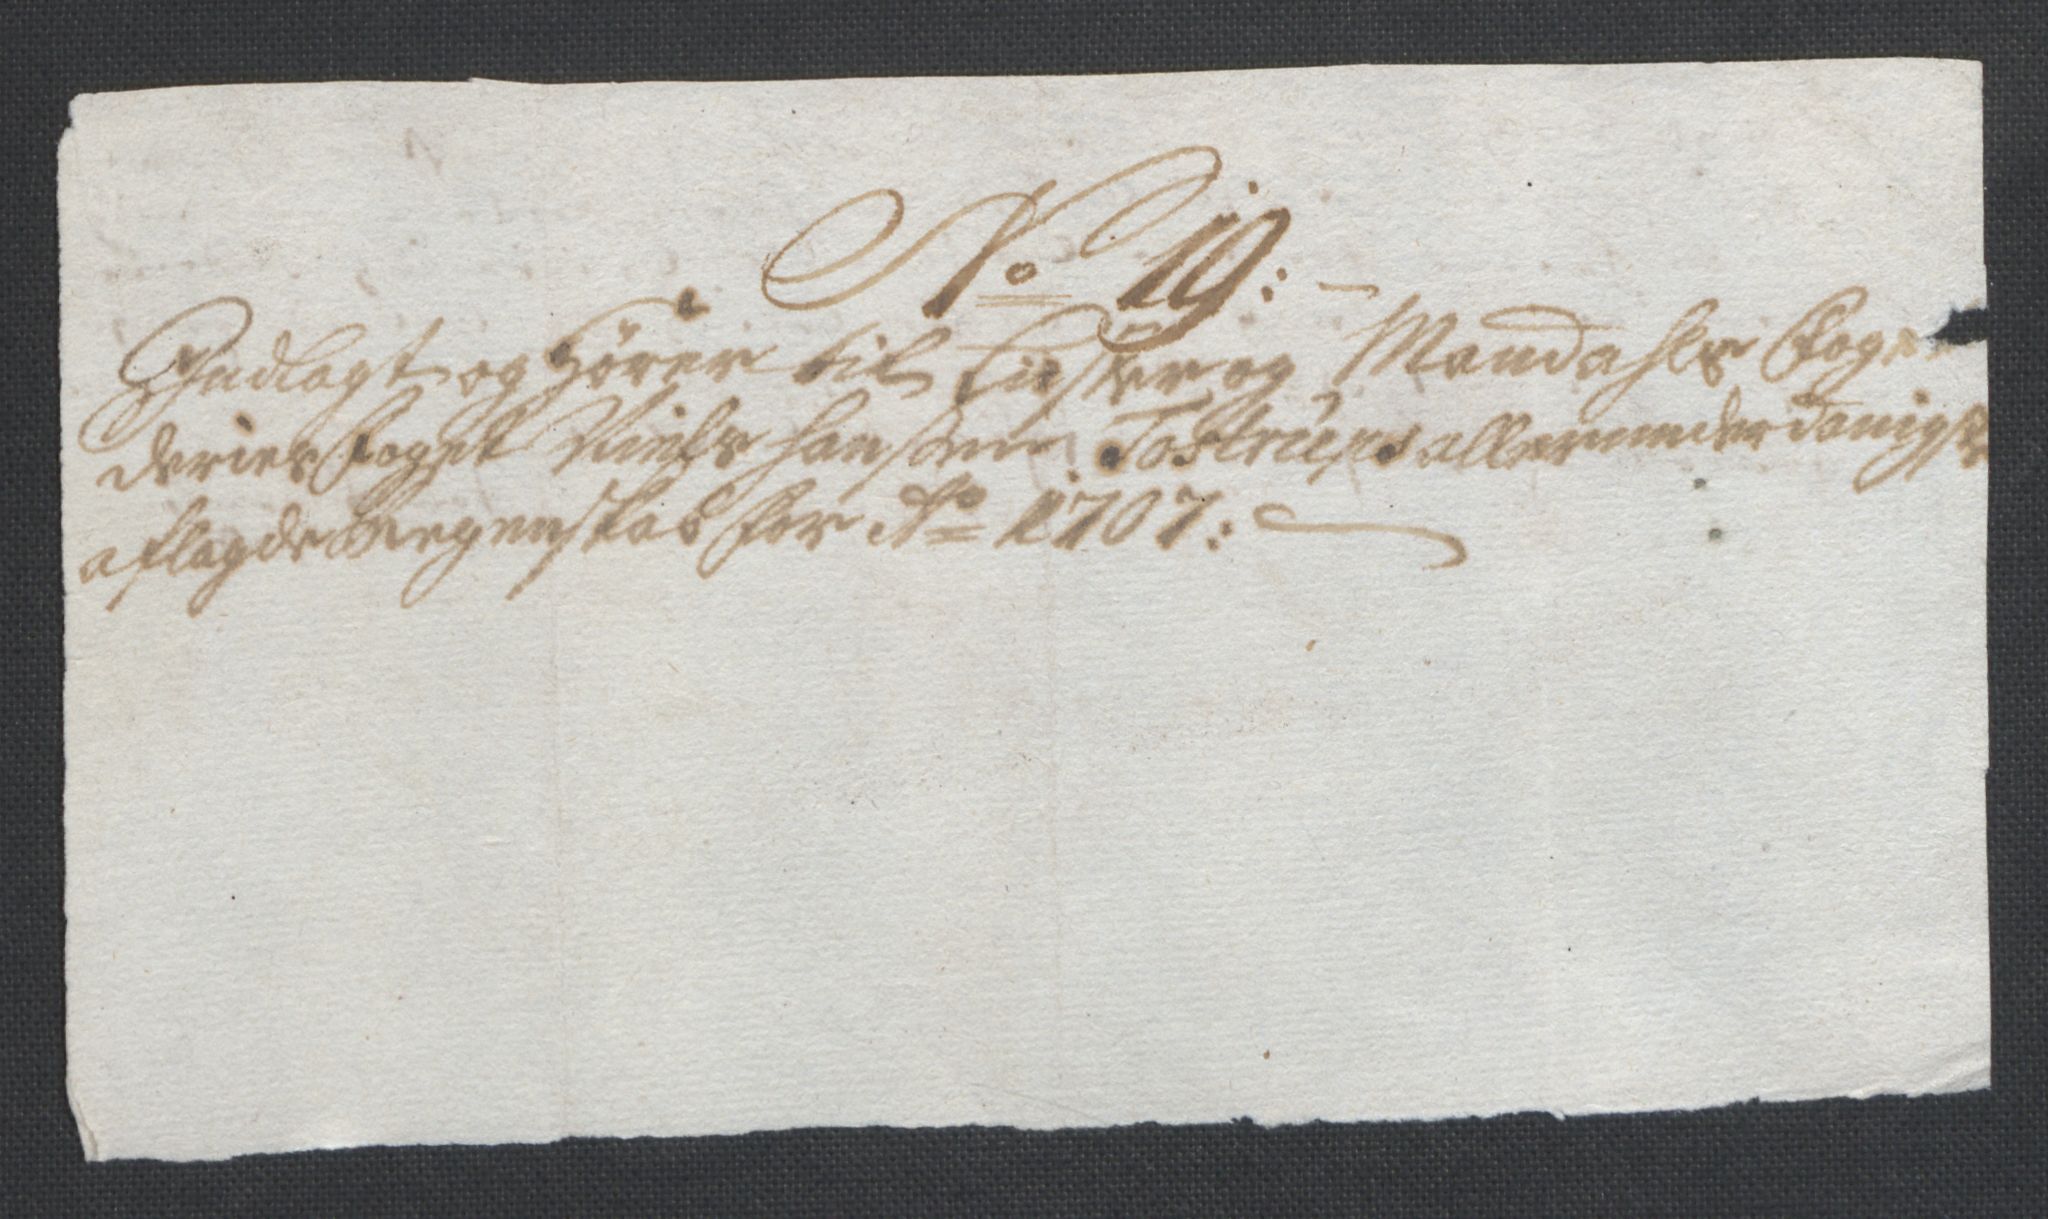 No 19:
Indlagt og hörer til Lister og Mandahls Foge
deries Fogset Niels Hansöen Tostrups allerunderdanigste
aflagde Regenskab for Ao 1707: